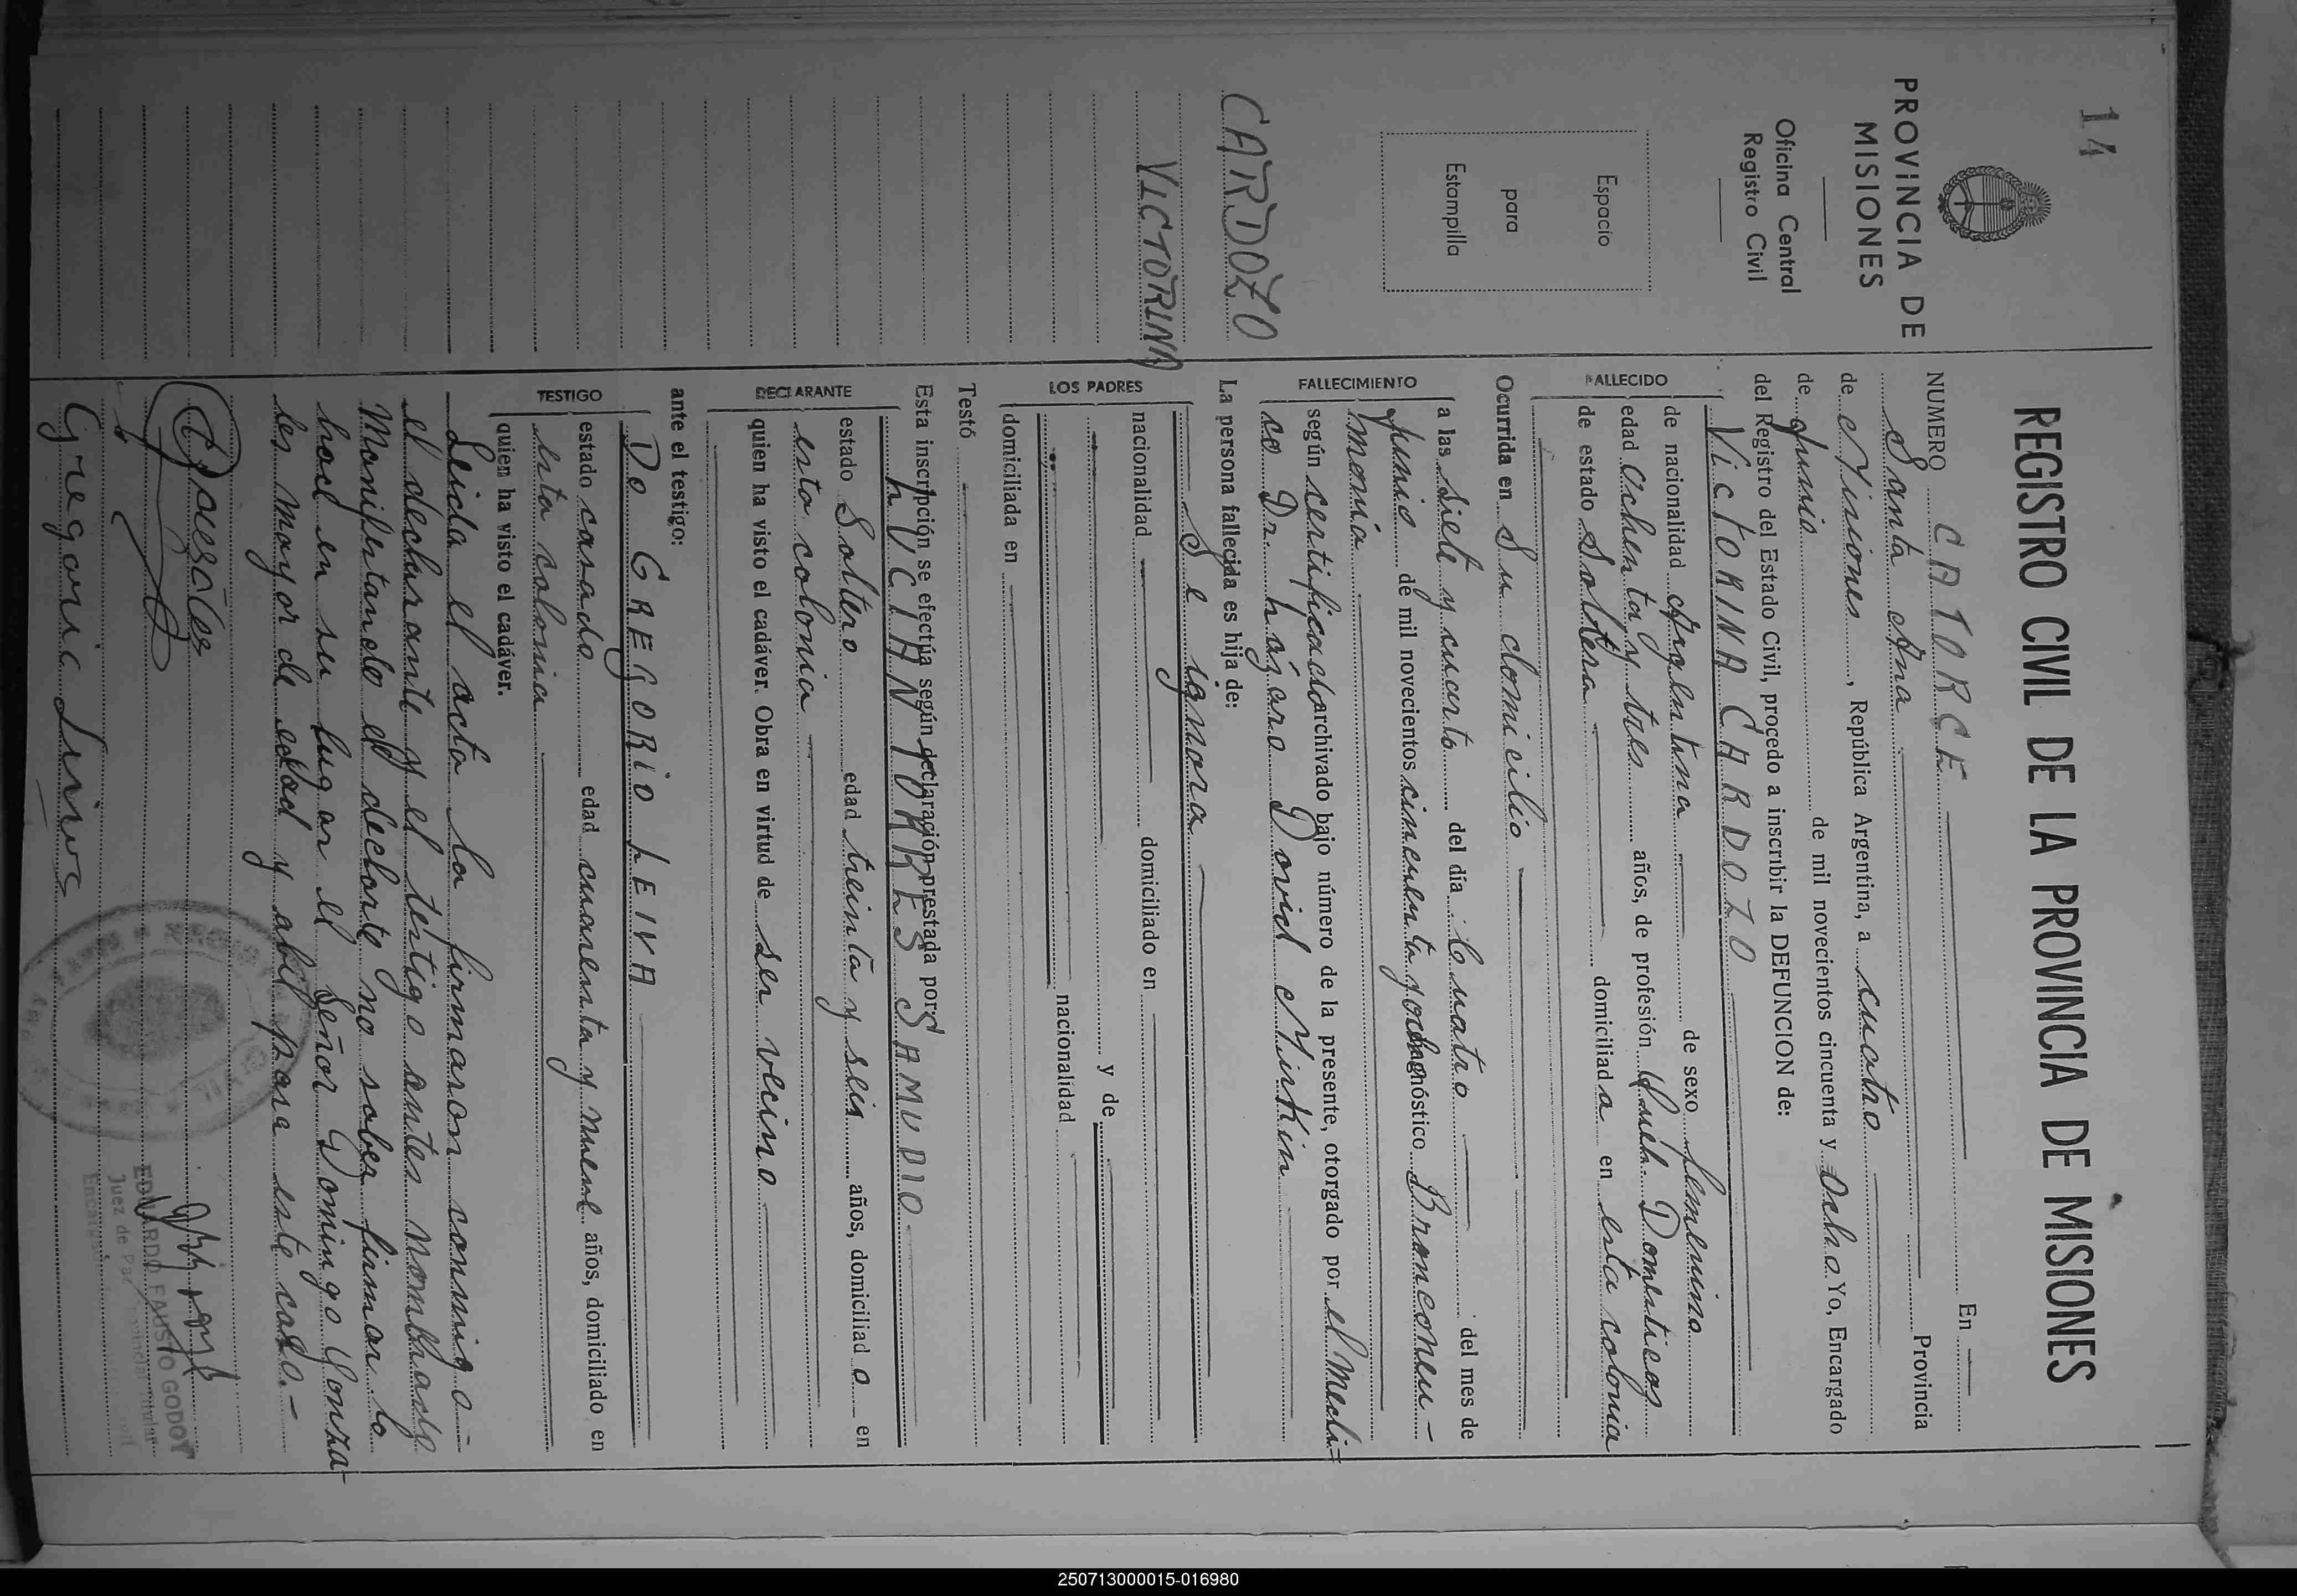 14
PROVINCIA DE
MISIONES
Oficina Central
Registro Civil
Espacio
para
Estampilla
CARDOZO
VICTORINA
REGISTRO CIVIL DE LA PROVINCIA DE MISIONES
NUMERO CATORCE En
Santa Ana Provincia
de Misiones, República Argentina, a cuatro
de Junio de mil novecientos cincuenta y Ocho Yo, Encargado
del Registro del Estado Civil, procedo a inscribir la DEFUNCION de:
FALLECIDO
VICTORINA CARDOZO
de nacionalidad Argentina de sexo femenino
edad Ochenta y tres años, de profesión Queh. Domésticos
de estado Soltera domiciliada en esta colonia
Ocurrida en Su domicilio
FALLECIMIENTO
a las Siete y cuarto del día Cuatro del mes de
Junio de mil novecientos cincuenta y ocho diagnóstico Bronconeu-
monía
según certificado archivado bajo número de la presente, otorgado por el Medi=
co Dr. Lázaro David Mirkin
La persona fallecida es hija de:
LOS PADRES
Se ignora
nacionalidad domiciliado en
y de
nacionalidad
domiciliada en
Testó
Esta inscripción se efectúa según declaración prestada por:
DECLARANTE
LUCIAN TORRES SAMUDIO
estado Soltero edad treinta y seis años, domiciliado en
esta colonia
quien ha visto el cadáver. Obra en virtud de ser vecino
ante el testigo:
TESTIGO
Do GREGORIO LEIVA
estado casado edad cuarenta y nueve años, domiciliado en
esta colonia
quien ha visto el cadáver.
Leida el acta la firmaron conmigo-
el declarante y el testigo antes nombrado
Manifestando el declarte no saber firmar lo
hace en su lugar el Señor Domingo Gonza-
les mayor de edad y abil para este caso.-
Gregorio
EDUARDO FAUSTO GODOY
Juez de Paz
250713000015-016980